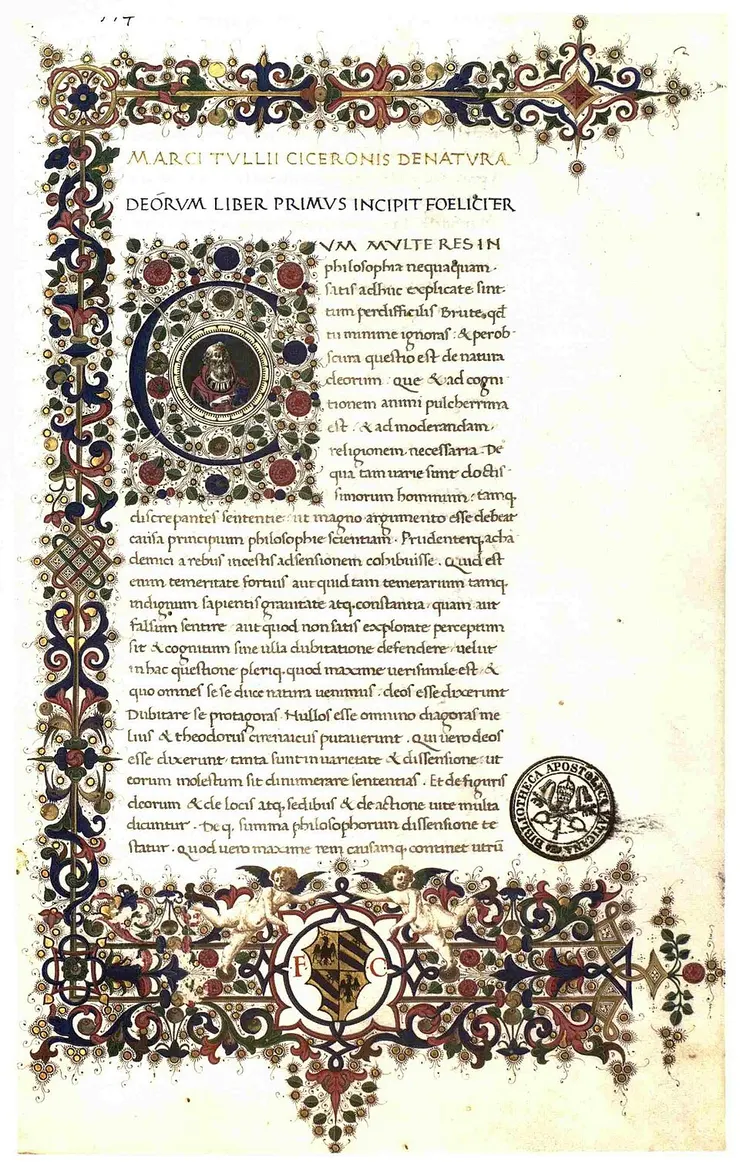 MARCI TVLLII CICERONIS DENATVRA
DEORVM LIBER PRIMVS INCIPIT FOELICITER
CVM MVLTE RES IN
philosophia nequaquam
satis adhuc explicate sint
tum perdifficilis Brute, qd
tu minime ignoras : & perob
scura questio est de natura
deorum : que & ad cogni
tionem animi pulcherrima
est . & ad moderandam
religionem necessaria . De
qua tam uarie sunt doctis
simorum hominum . tamq.
discrepantes sententie : ut magno argumento esse debeat
causa principium philosophie scientiam . Prudenterq. acha
demici a rebus incertis adsensionem cohibuisse . Quid est
enim temeritate fortius aut quid tam temerarium tamq.
indignum sapientis grauitate atq. constantia . quam aut
falsum sentire . aut quod non satis explorate perceptum
sit & cognitum sine ulla dubitatione defendere . uelut
in hac questione pleriq. quod maxime uerisimile est . &
quo omnes se se duce natura uenimus . deos esse dixerunt
Dubitare se protagoras . Nullos esse omnino diagoras me
lius & theodorus cirenaicus putauerunt . Qui uero deos
esse dixerunt . tanta sunt in uarietate & dissensione . ut
eorum molestum sit dinumerare sententias . Et de figuris
deorum & de locis atq. sedibus & de actione uite multa
dicuntur . De q. summa philosophorum dissensione te
statur . Quod uero maxime rem causamq. continet utrū
BIBLIOTHECA APOSTOLICA VATICANA
F C